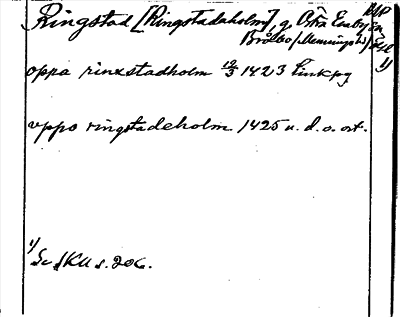 Ringstad [Ringstadaholm], g, Östra Eneby
Bråbo (Memmings hd)
oppa rinxstadholm 12/3 1423 Linkpg
uppo ringstadeholm 1425 u. d. o. ort.
1) Se SKU s. 206.